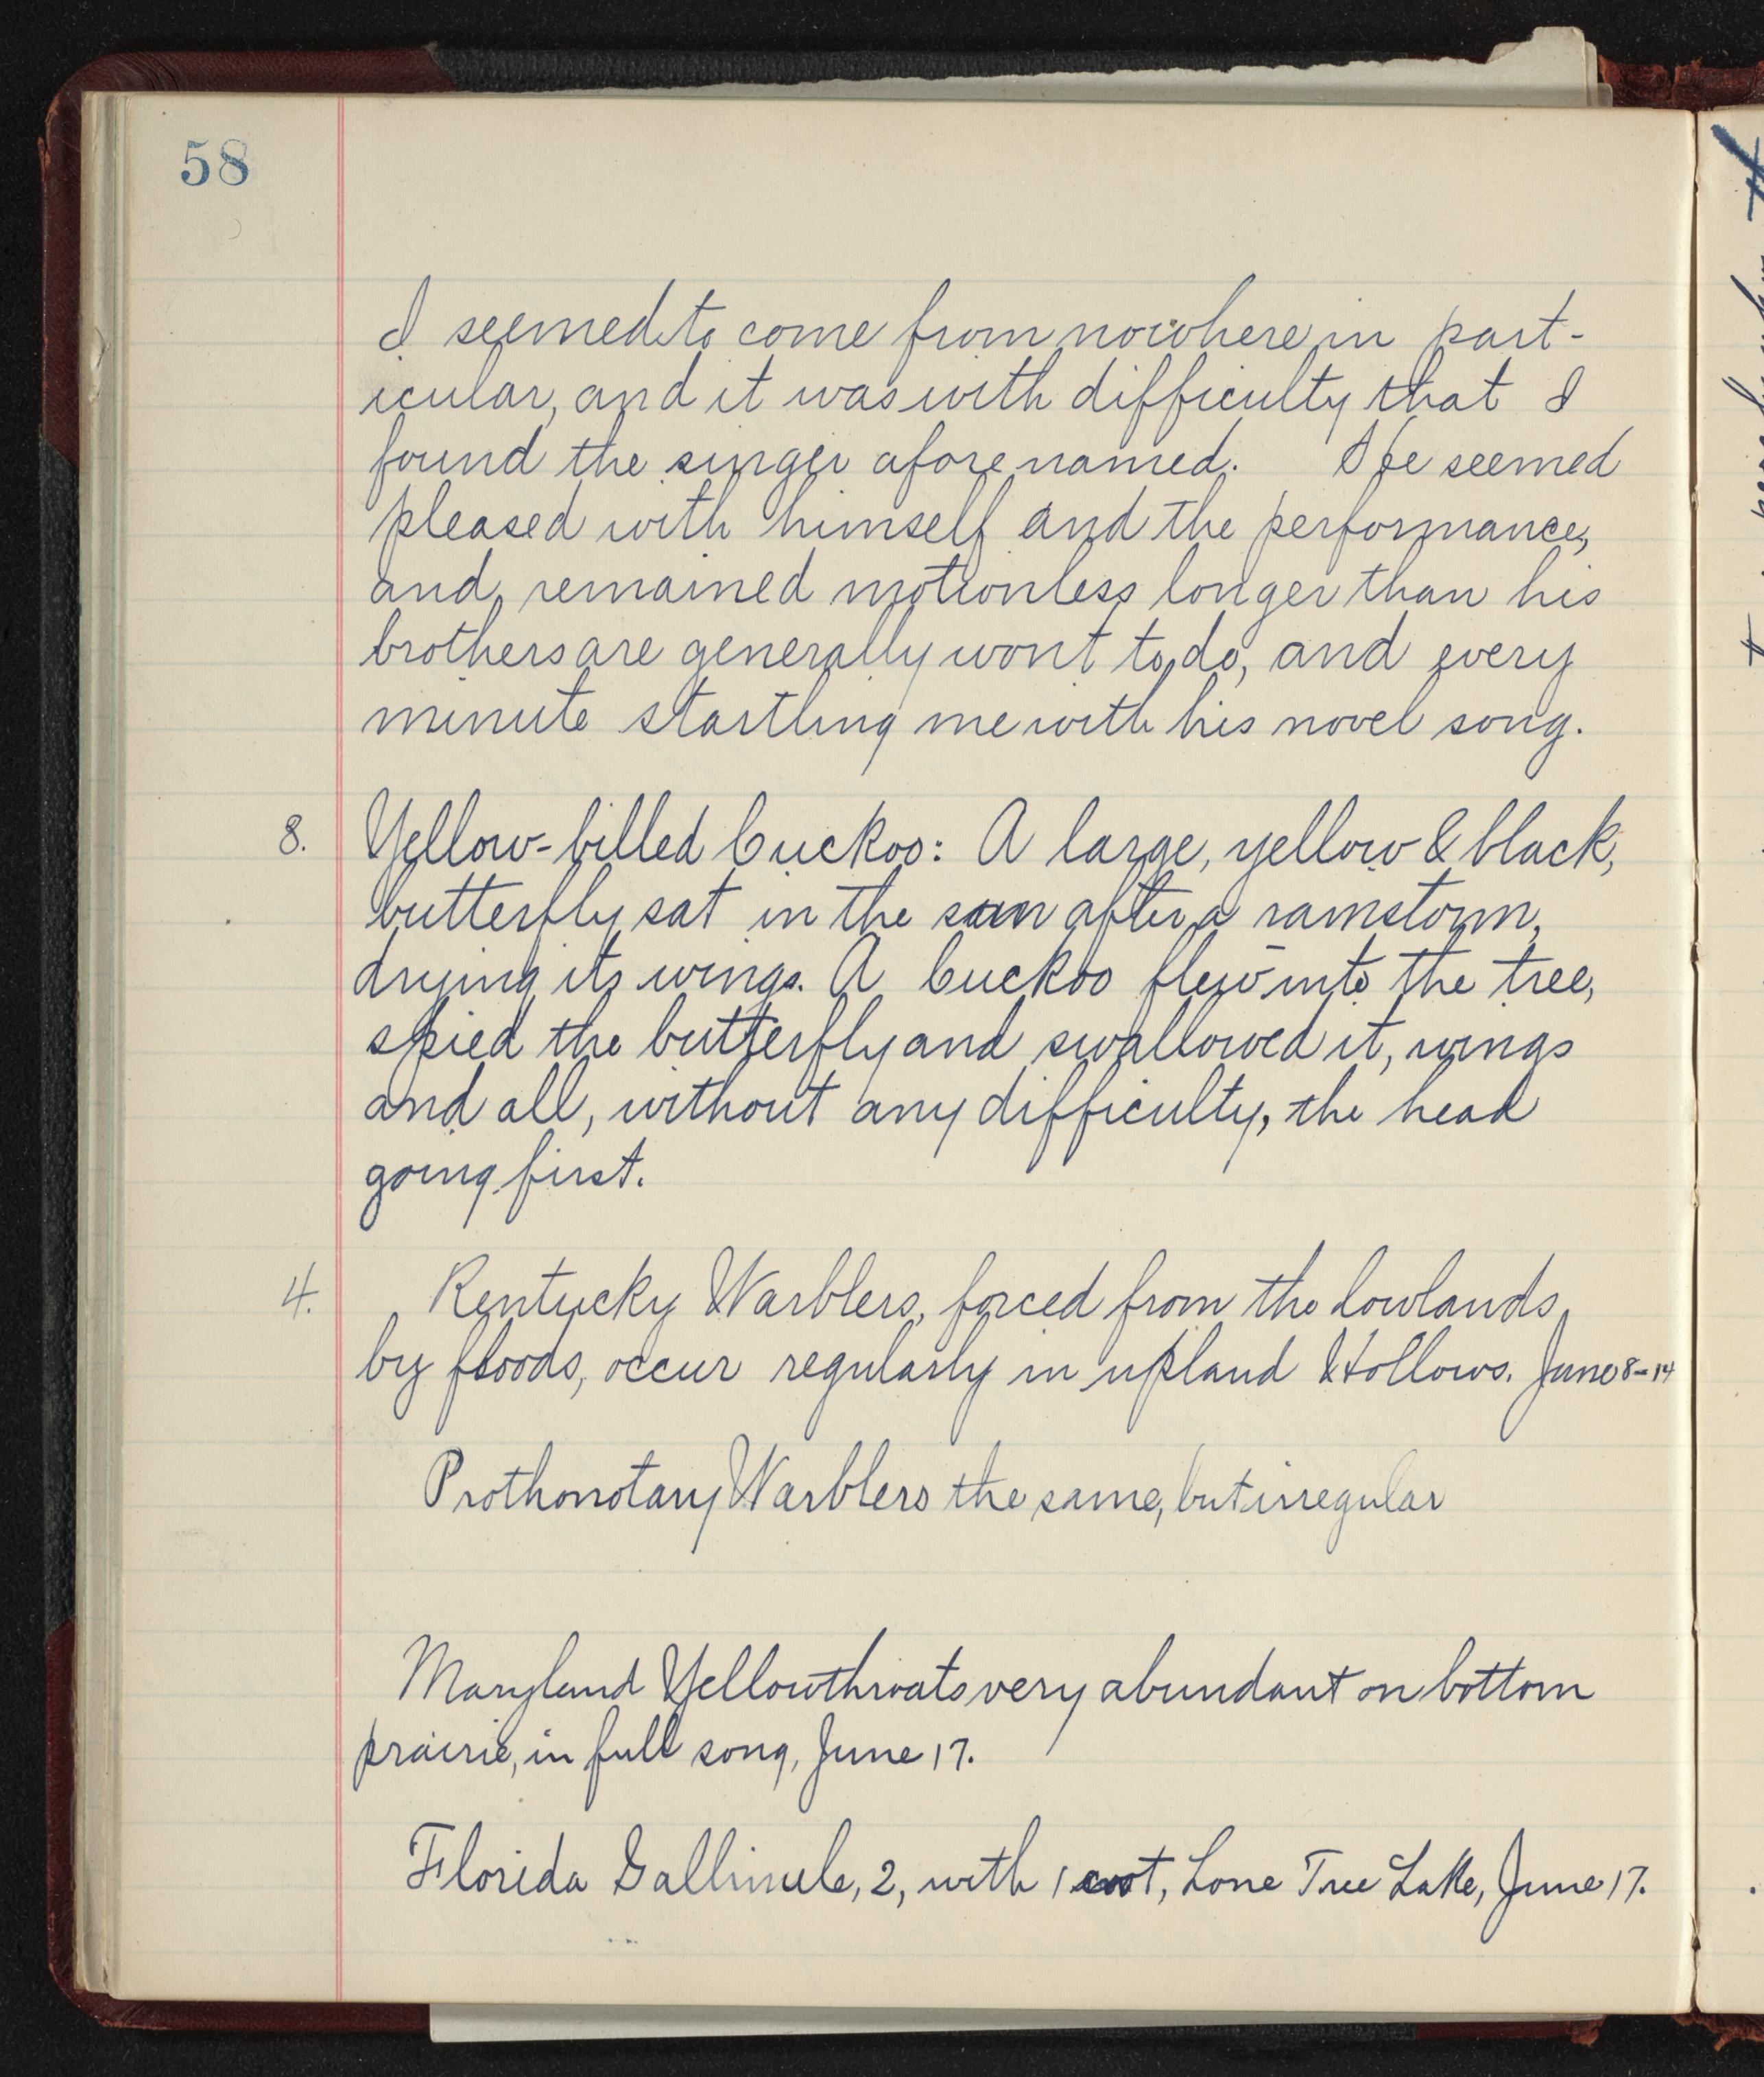 58
I seemed to come from nowhere in part-
icular, and it was with difficulty that I
found the singer afore named. He seemed
pleased with himself and the performance,
and remained motionless longer than his
brothers are generally wont to do, and every
minute startling me with his novel song.
8. Yellow-billed Cuckoo: A large, yellow & black,
butterfly sat in the sun after a rainstorm,
drying its wings. A Cuckoo flew into the tree,
spied the butterfly and swallowed it, wings
and all, without any difficulty, the head
going first.
4. Kentucky Warblers, forced from the lowlands
by floods, occur regularly in upland Hollows. June 8-14
Prothonotary Warblers the same, but irregular
Maryland Yellowthroats very abundant on bottom
prairie, in full song, June 17.
Florida Gallinule, 2, with 1 coot, Lone Tree Lake, June 17.